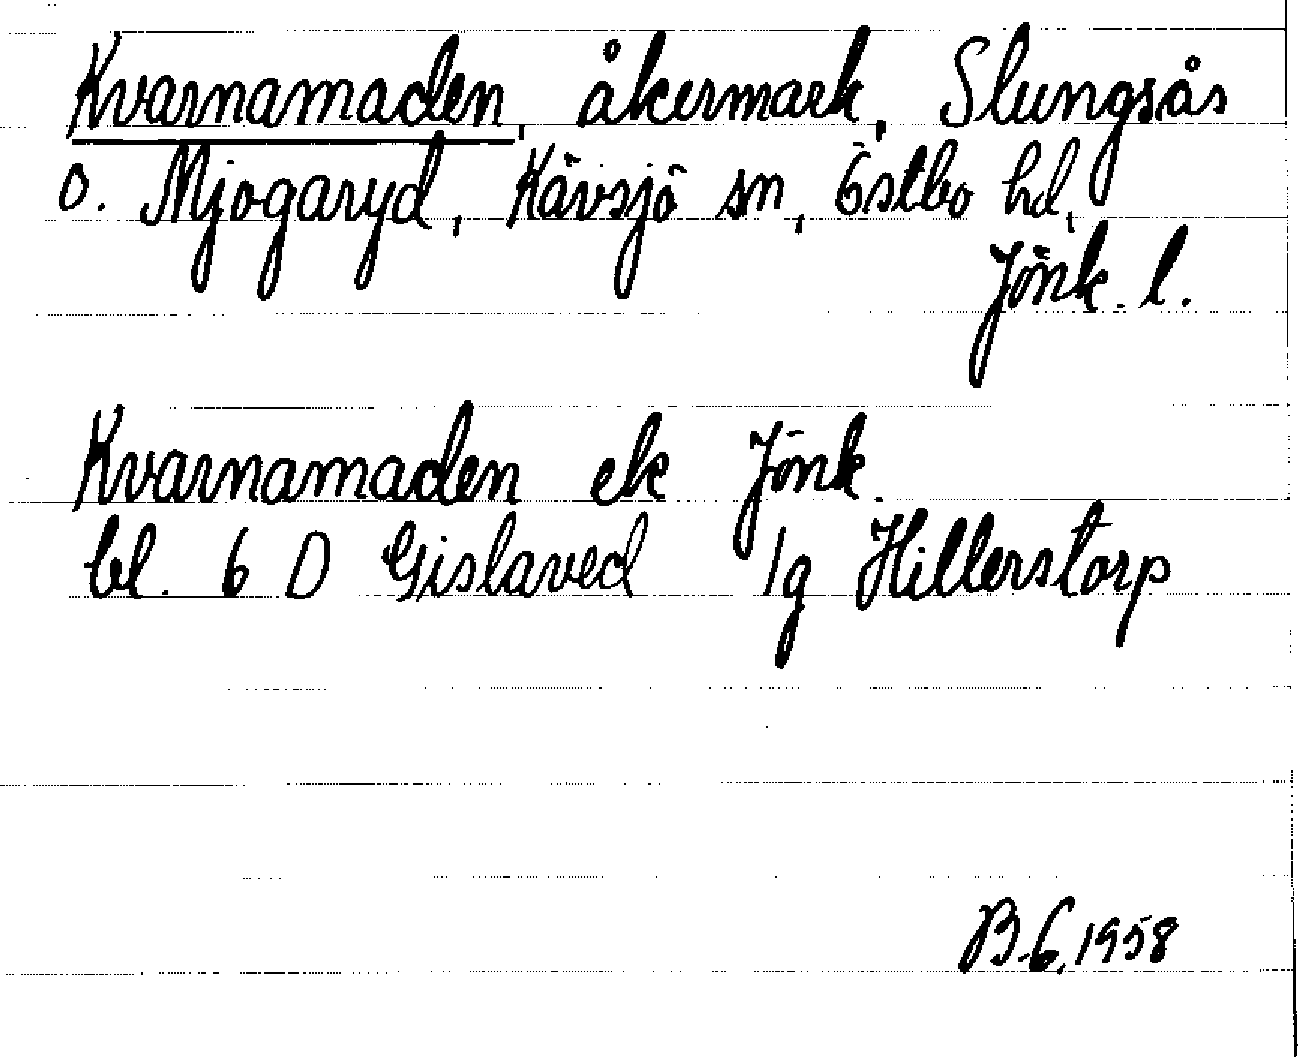 Kvarnamaden, åkermark, Slungsås
o. Mjogaryd, Kävsjö sn, Östbo hd,
Jönk. l.
Kvarnamaden ek Jönk.
bl. 6 D Gislaved 1g Hillerstorp
B.6, 1958